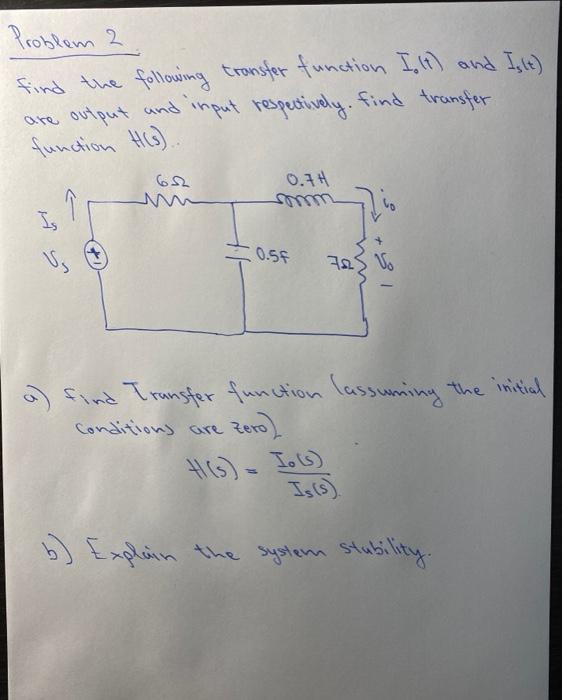 Problem 2
Find the following transfer function I₀(t) and Iₛ(t)
are output and input respectively. Find transfer
function H(s)..
6Ω 0.7H
Iₛ i₀
Vₛ + 0.5F 7Ω + V₀ -
a) Find Transfer function (assuming the initial
conditions are zero)
H(s) = I₀(s) / Iₛ(s).
b) Explain the system stability.